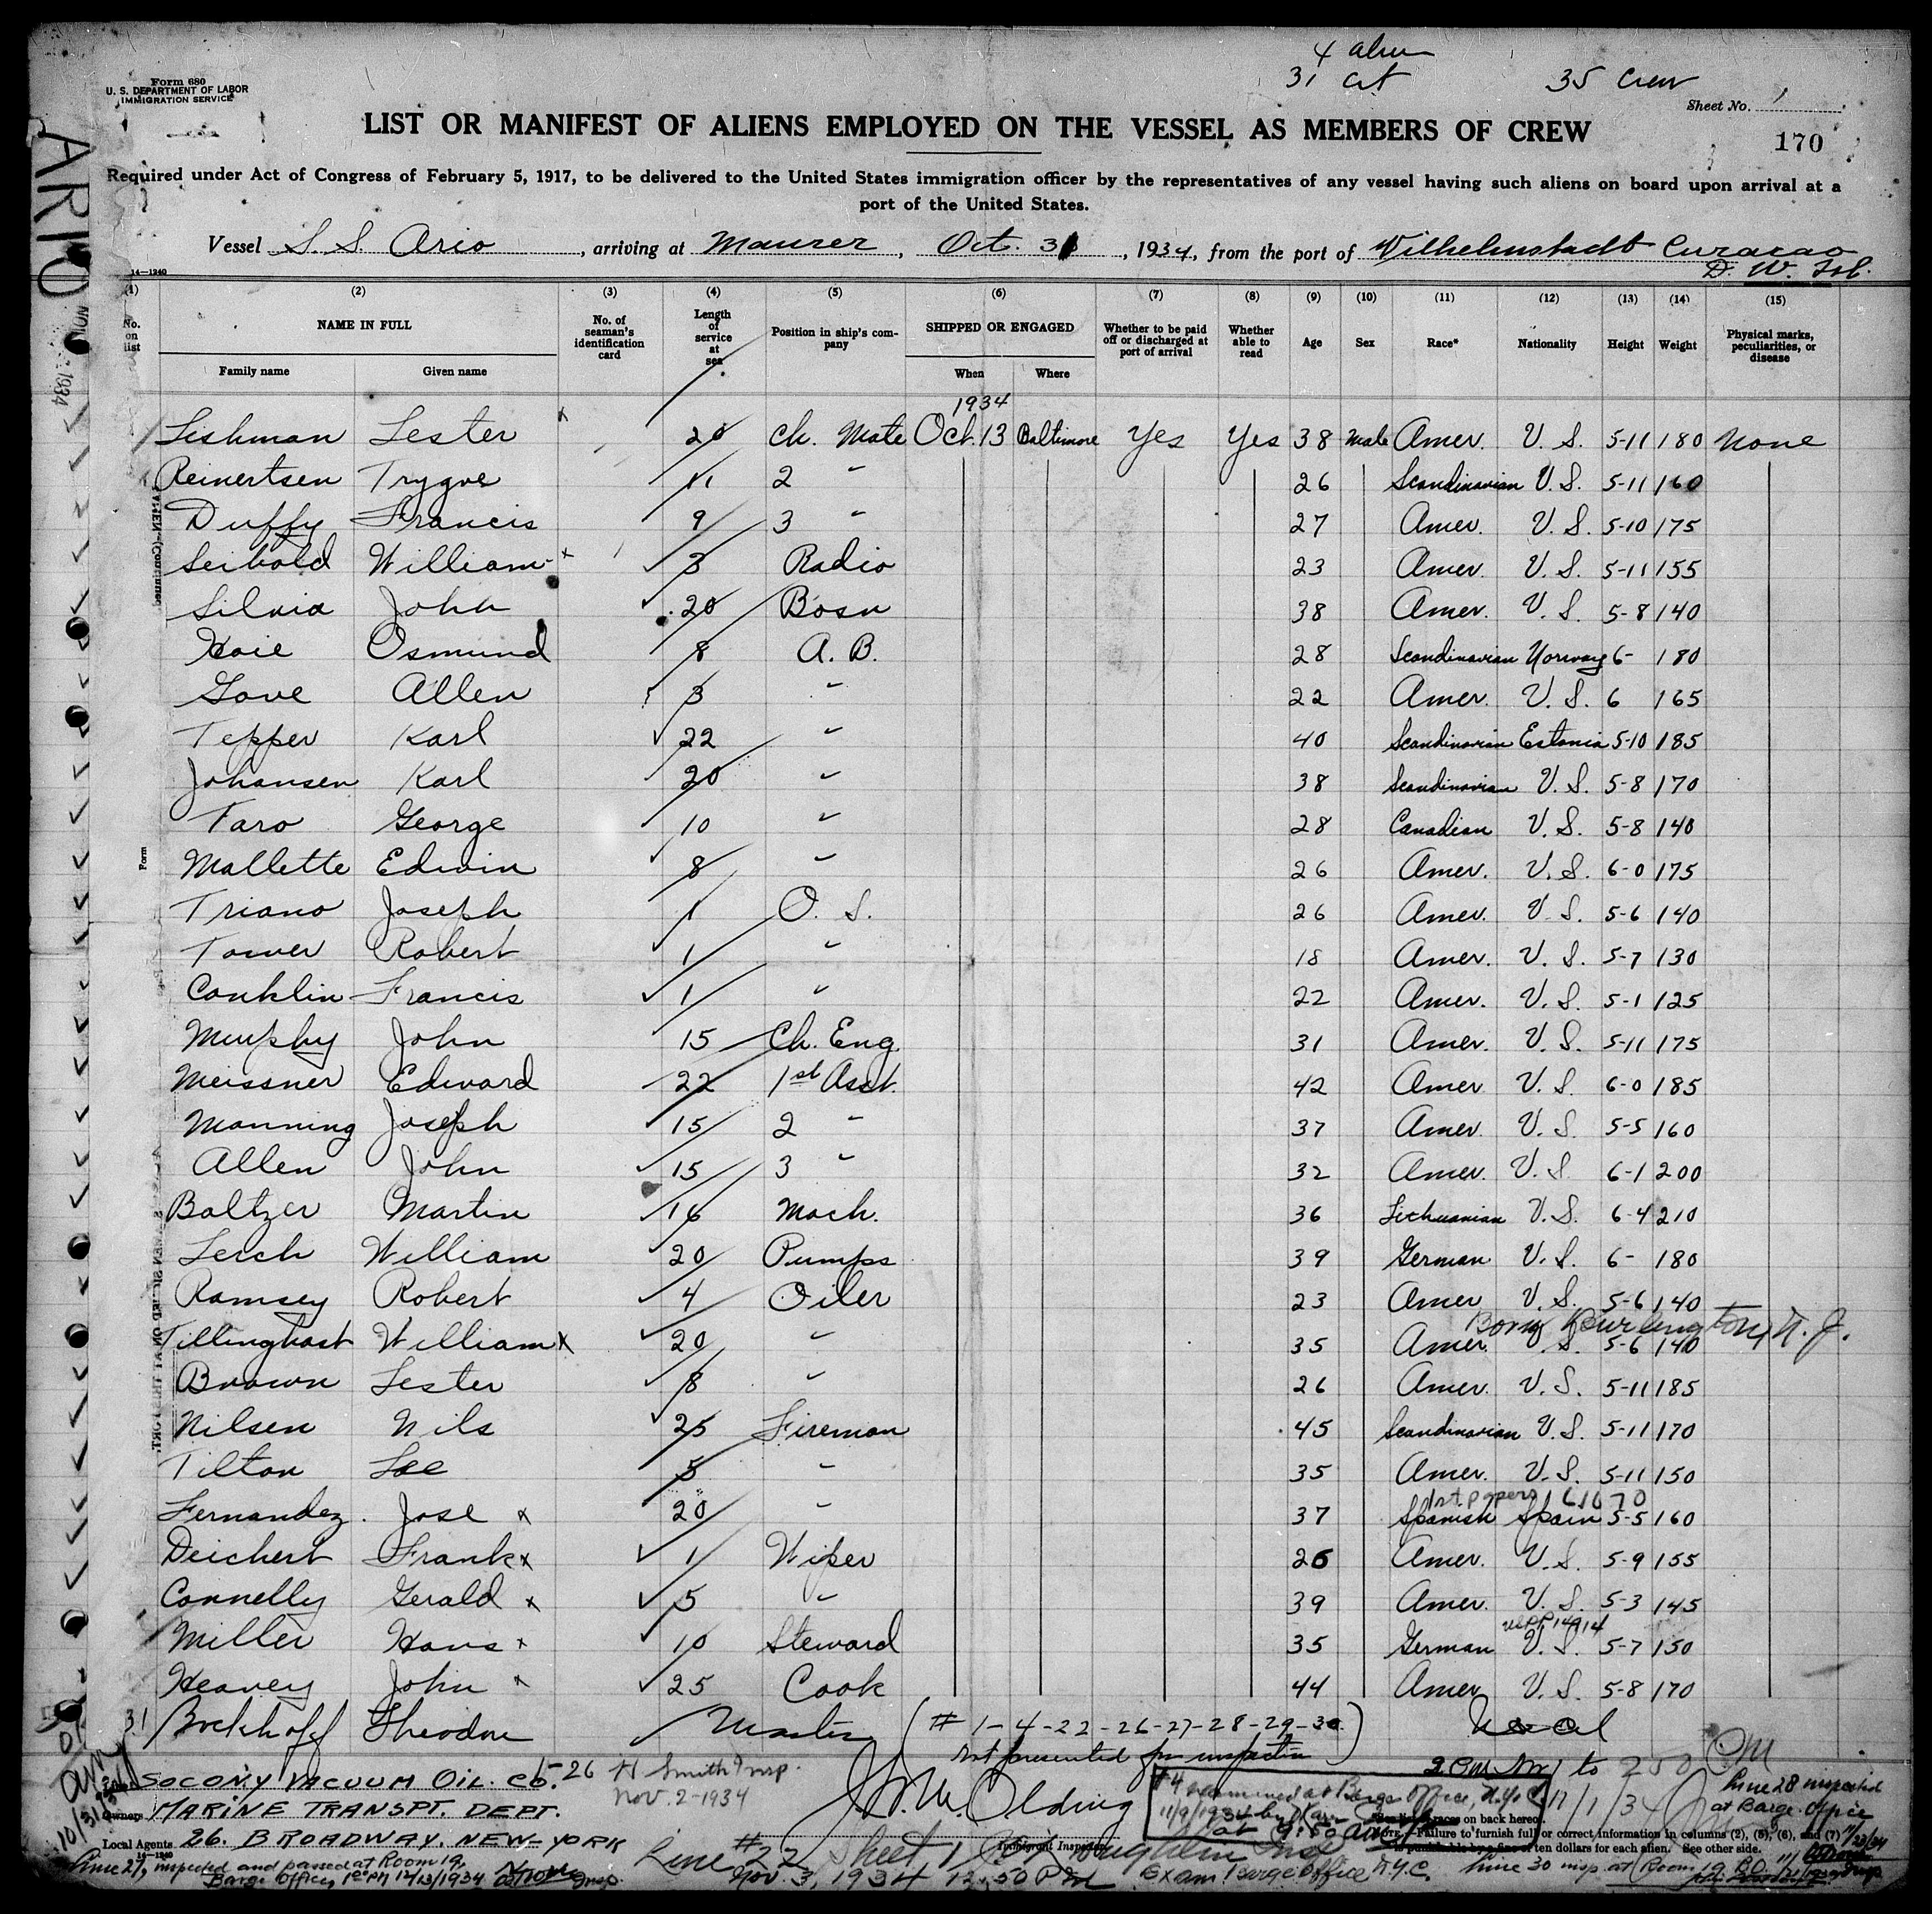 4 alien
31 cit
35 Crew
Form 680
U. S. DEPARTMENT OF LABOR
IMMIGRATION SERVICE
Sheet No. 1
LIST OR MANIFEST OF ALIENS EMPLOYED ON THE VESSEL AS MEMBERS OF CREW
170
ARIO
Required under Act of Congress of February 5, 1917, to be delivered to the United States immigration officer by the representatives of any vessel having such aliens on board upon arrival at a
port of the United States.
Vessel S. S. Ario, arriving at Maurer, Oct. 31, 1934, from the port of Wilhelmstadt Curacao
D. W. Ind.
14—1240
(1) (2) (3) (4) (5) (6) (7) (8) (9) (10) (11) (12) (13) (14) (15)
No. on list NAME IN FULL No. of seaman's identification card Length of service at sea Position in ship's company SHIPPED OR ENGAGED Whether to be paid off or discharged at port of arrival Whether able to read Age Sex Race* Nationality Height Weight Physical marks, peculiarities, or disease
Family name Given name When Where
1934
Lishman Lester x 20 Ch. Mate Oct. 13 Baltimore Yes Yes 38 Male Amer. U. S. 5-11 180 None
Reinertsen Trygve 11 2 " 26 Scandinavian U. S. 5-11 160
Duffy Francis 9 3 " 27 Amer. U. S. 5-10 175
Seibold William x 3 Radio 23 Amer. U. S. 5-11 155
Silvia John 20 Bosn 38 Amer. U. S. 5-8 140
Hoie Osmund 8 A. B. 28 Scandinavian Norway 6- 180
Gove Allen 3 " 22 Amer. U. S. 6 165
Tepper Karl 22 " 40 Scandinavian Estonia 5-10 185
Johansen Karl 20 " 38 Scandinavian U. S. 5-8 170
Faro George 10 " 28 Canadian U. S. 5-8 140
Mallette Edwin 8 " 26 Amer. U. S. 6-0 175
Triano Joseph 1 O. S. 26 Amer. U. S. 5-6 140
Tower Robert 1 " 18 Amer. U. S. 5-7 130
Conklin Francis 1 " 22 Amer. U. S. 5-1 125
Murphy John 15 Ch. Eng. 31 Amer. U. S. 5-11 175
Meissner Edward 22 1st Asst. 42 Amer. U. S. 6-0 185
Manning Joseph 15 2 " 37 Amer. U. S. 5-5 160
Allen John 15 3 " 32 Amer. U. S. 6-1 200
Baltzer Martin 16 Mach. 36 Lithuanian U. S. 6-4 210
Lerch William 20 Pumps 39 German U. S. 6- 180
Ramsey Robert 4 Oiler 23 Amer U. S. 5-6 140
Born Burlington, N. J.
Tillinghast William x 20 " 35 Amer. U. S. 5-6 140
Brown Lester 8 " 26 Amer. U. S. 5-11 185
Nilsen Nils 25 Fireman 45 Scandinavian U. S. 5-11 170
Tilton Lee 5 " 35 Amer. U. S. 5-11 150
1st papers
Fernandez Jose x 20 " 37 Spanish Spain 5-5 160
Deichert Frank x 1 Wiper 26 Amer. U. S. 5-9 155
Connelly Gerald x 5 " 39 Amer. U. S. 5-3 145
Miller Hans x 10 Steward 35 German U. S. 5-7 150
Heavey John x 25 Cook 44 Amer U. S. 5-8 170
31 Bockhoff Theodore Master
(# 1-4-22-26-27-28-29-30.)
not presented for inspection
SOCONY VACUUM OIL. CO.
Owners MARINE TRANSPT. DEPT.
Local Agents 26. BROADWAY, NEW-YORK
H Smith Insp.
Nov. 2-1934
J. M. Olding
Immigrant Inspector.
#4 examined at Barge Office, N.Y.C.
11/9/1934
at 9:50 am
11/1/34
Line 28 inspected
at Barge Office
races on back hereof.
NOTE.—Failure to furnish full or correct information in columns (2), (5), (6), and (7)
is punishable by a fine of ten dollars for each alien. See other side.
14—1240
Line 27, inspected and passed at Room 19,
Barge Office,
Line #22 Sheet 1
Nov. 3, 1934 12.50 PM Exam. Barge Office N.Y.C.
Line 30 insp. at Room 19 B.O.